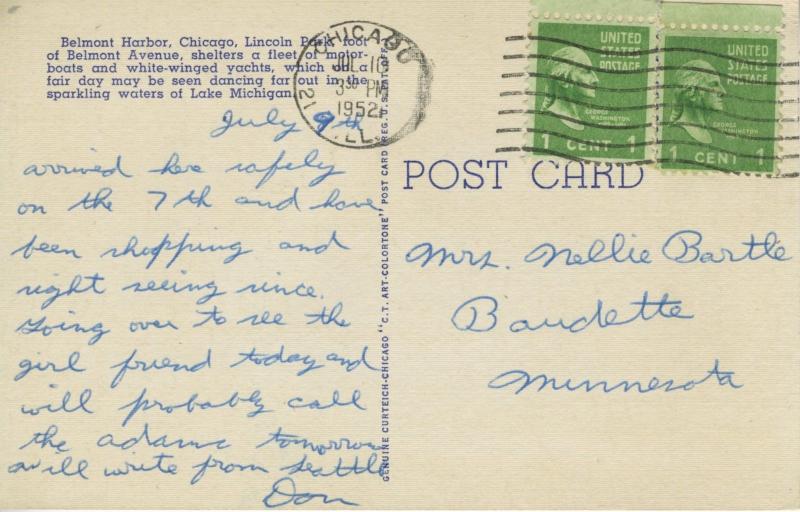 Belmont Harbor, Chicago, Lincoln Park, foot
of Belmont Avenue, shelters a fleet of motor-
boats and white-winged yachts, which on a
fair day may be seen dancing far out in the
sparkling waters of Lake Michigan.
CHICAGO
JUL 10
3 30 PM
1952
ILL.
12
UNITED
STATES
POSTAGE
GEORGE
WASHINGTON
1 CENT 1
UNITED
STATES
POSTAGE
GEORGE
WASHINGTON
1 CENT 1
POST CARD
GENUINE CURTEICH-CHICAGO "C.T. ART-COLORTONE" POST CARD (REG. U.S. PAT. OFF.
July 9th
arrived here safely
on the 7th and have
been shopping and
sight seeing since.
Going over to see the
girl friend today and
will probably call
the adams tomorrow
will write from Seattle
Don
Mrs. Nellie Bartle
Baudette
Minnesota